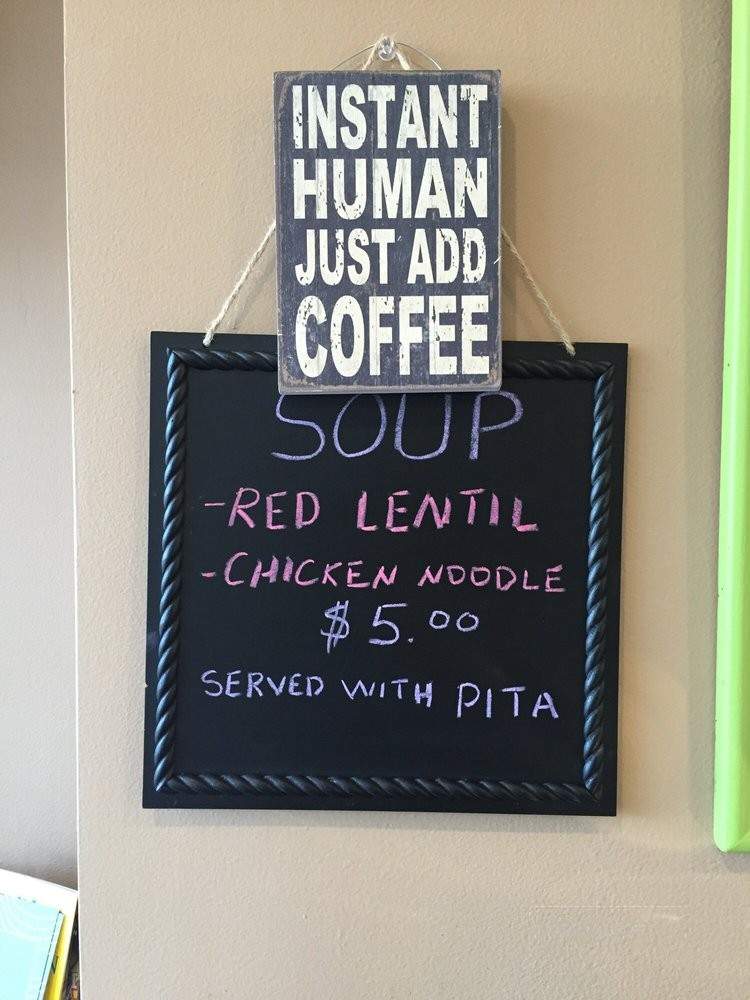 INSTANT
HUMAN
JUST ADD
COFFEE
SOUP
-RED LENTIL
-CHICKEN NOODLE
$5.00
SERVED WITH PITA